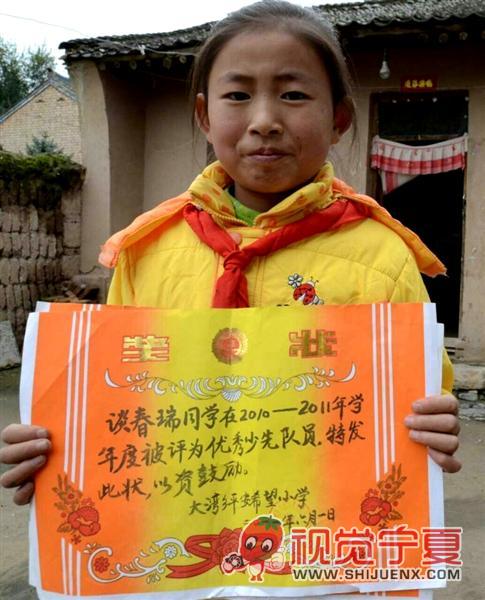 奖 状
谈春瑞同学在2010—2011年学
年度被评为优秀少先队员，特发
此状，以资鼓励。
大湾乡 希望小学
年六月一日
视觉宁夏
WWW.SHIJUENX.COM